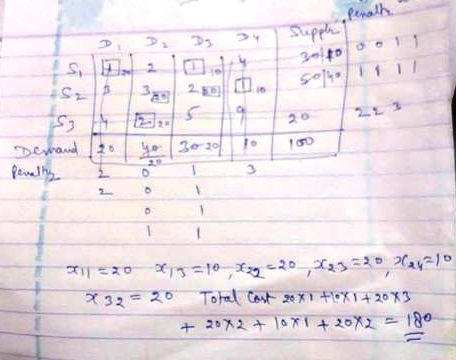 Penalty
D1 D2 D3 D4 Supply
S1 1 20 2 1 10 4 30/10 0 0 1 1
S2 3 3 20 2 20 1 10 50/40 1 1 1 1
S3 4 2 20 5 9 20 2 2 3
Demand 20 40 20 30 20 10 100
Penalty 2 0 1 3
2 0 1
0 1
1 1
x11=20 x13=10, x22=20, x23=20, x24=10
x32=20 Total Cost 20x1+10x1+20x3
+ 20x2 + 10x1 + 20x2 = 180